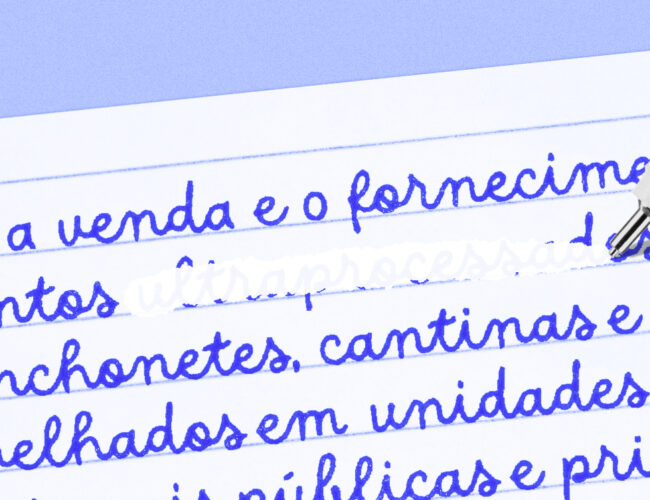 a venda e o fornecime
ntos ultraprocessados
nchonetes, cantinas e
elhados em unidades
is públicas e pri